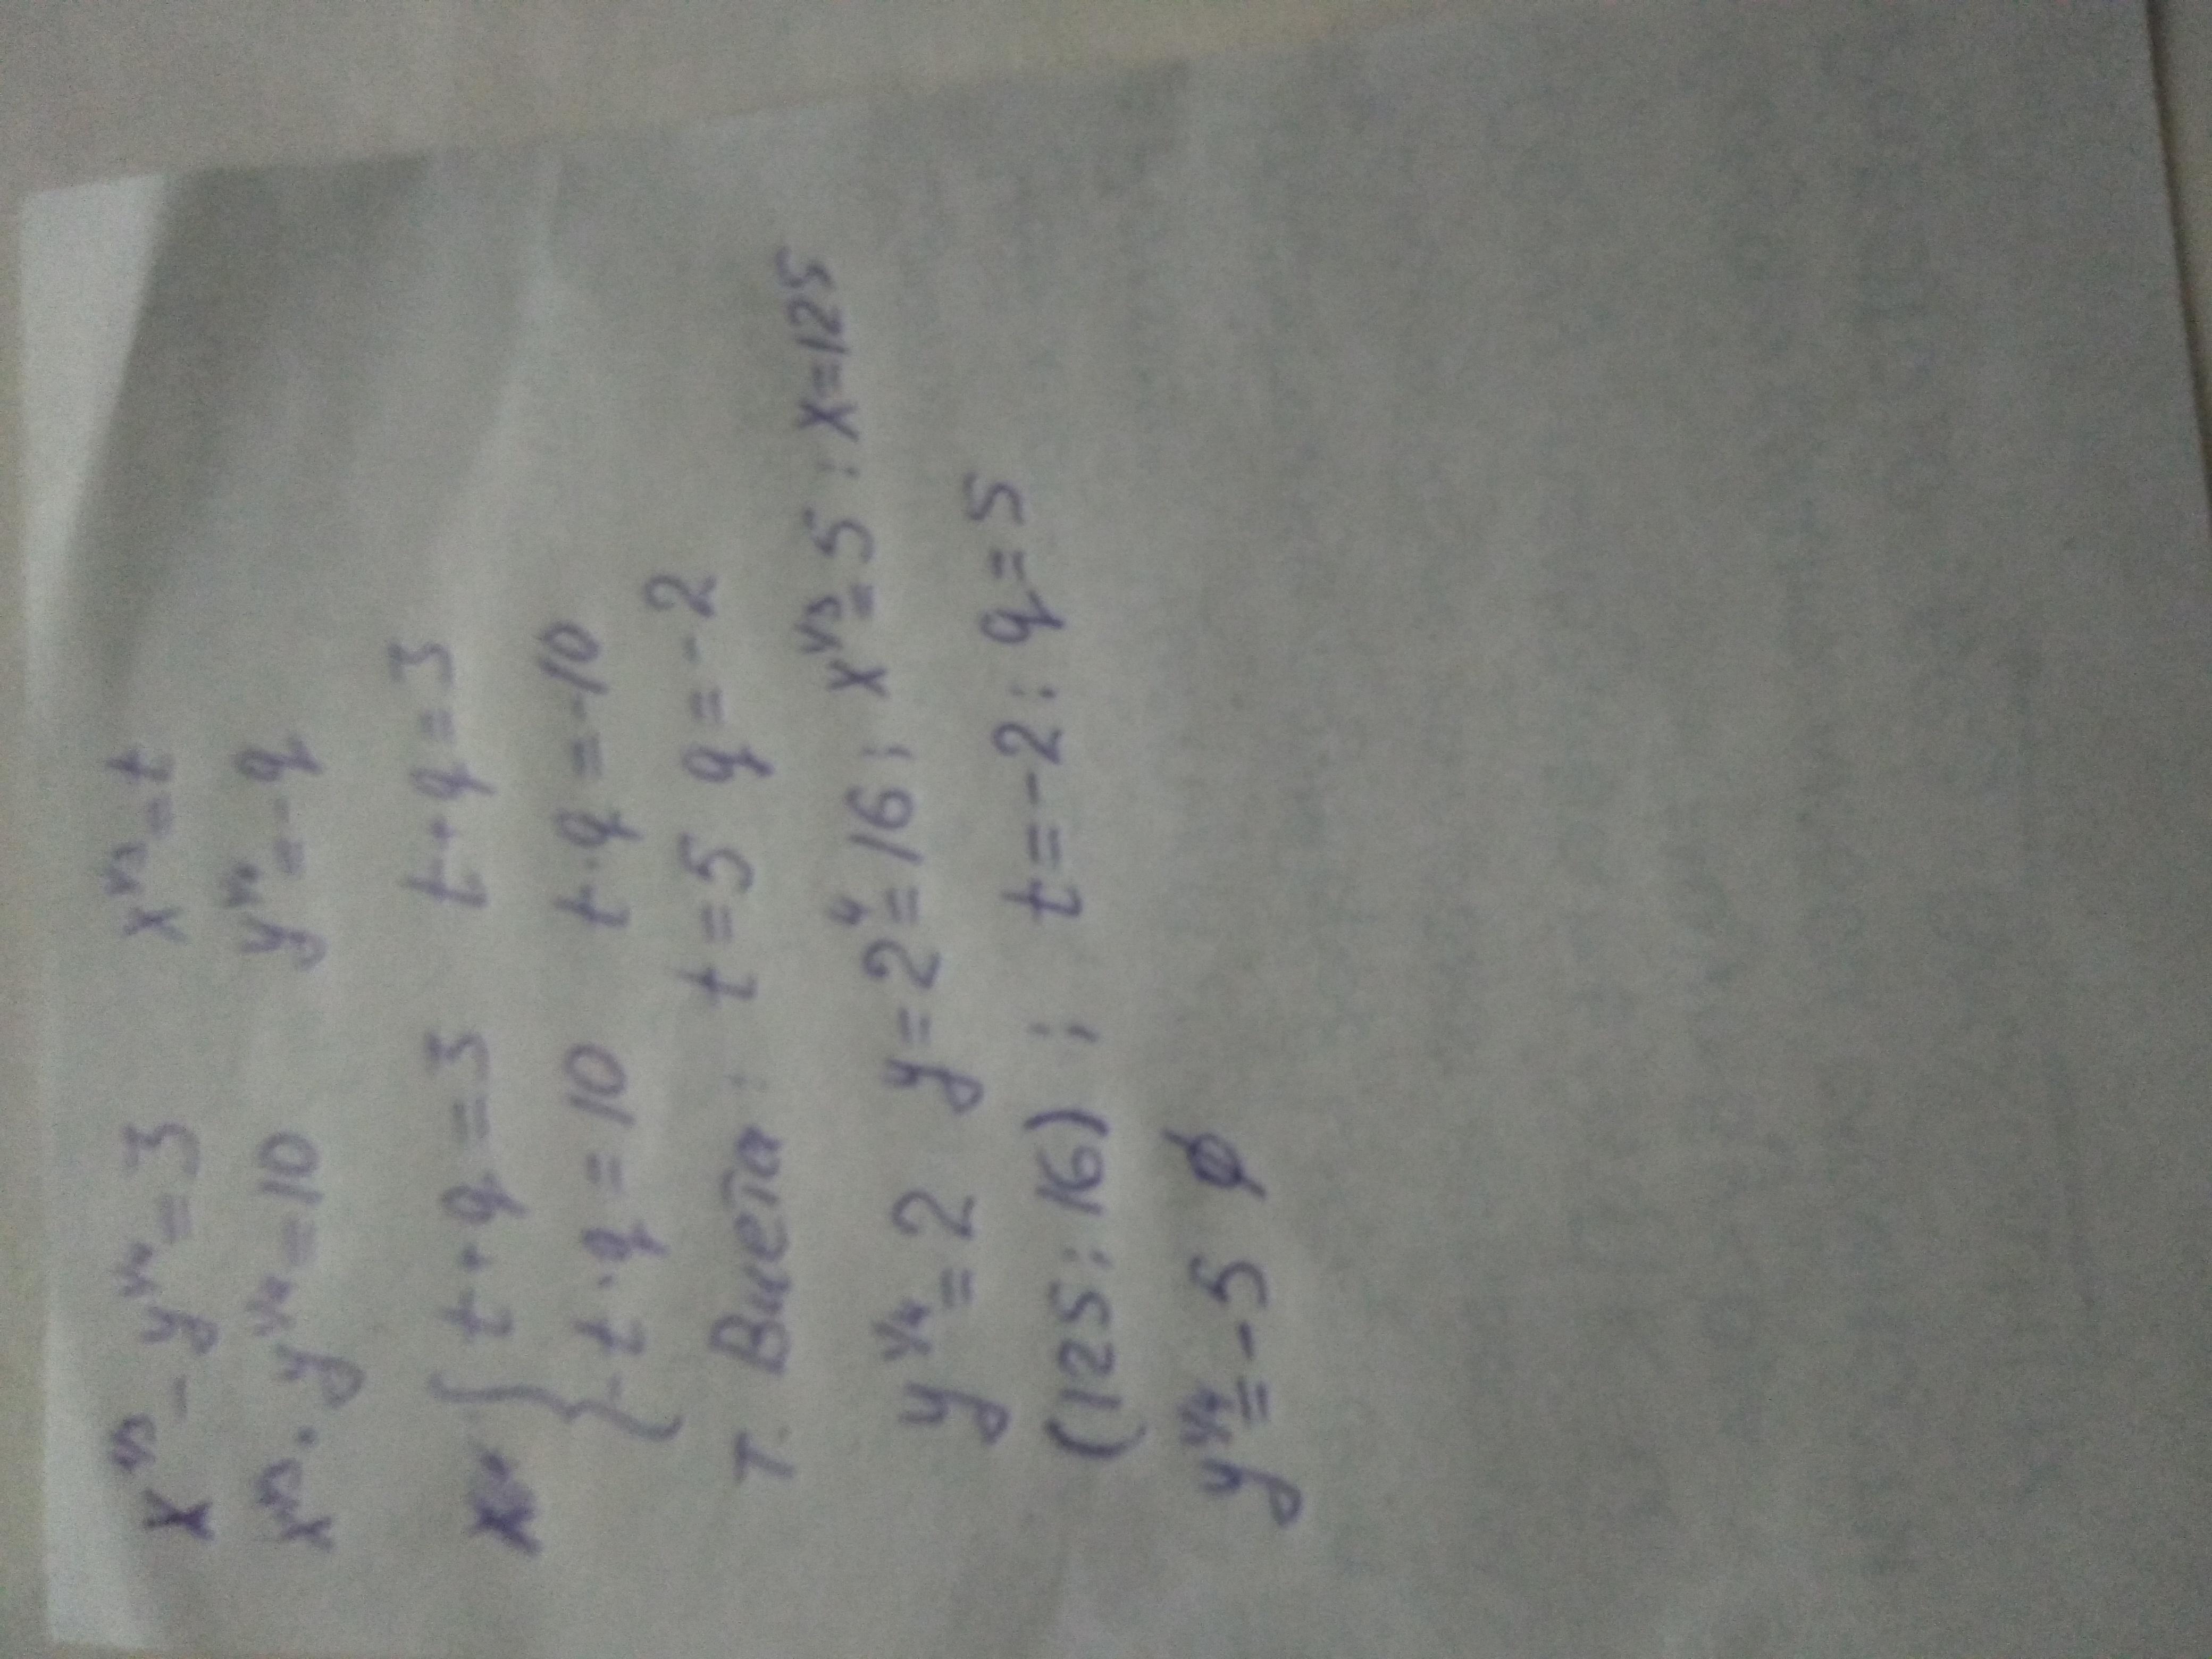 x^1/3 - y^1/4 = 3 x^1/3 = t
x^1/3 · y^1/4 = 10 y^1/4 = -q
{ t + q = 3 t + q = 3
- t · q = 10 t · q = -10
т. Виета: t = 5 q = -2
y^1/4 = 2 y = 2^4 = 16; x^1/3 = 5; x = 125
(125; 16); t = -2; q = 5
y^1/4 = -5 ∅